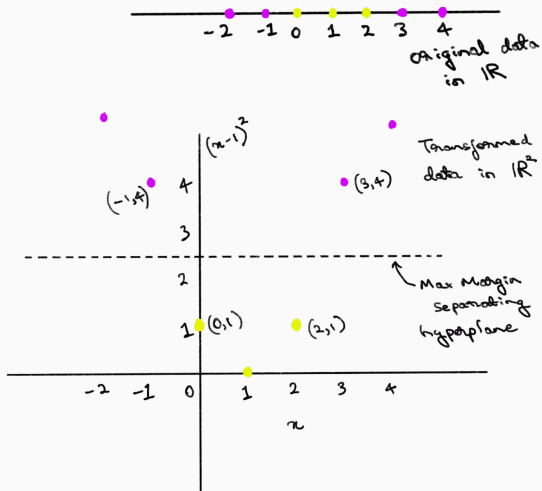 -2 -1 0 1 2 3 4
original data
in IR
(x-1)²
Transformed
data in IR²
(-1,4)
4
(3,4)
3
2
Max Margin
separating
hyperplane
1
(0,1)
(2,1)
-2 -1 0 1 2 3 4
x